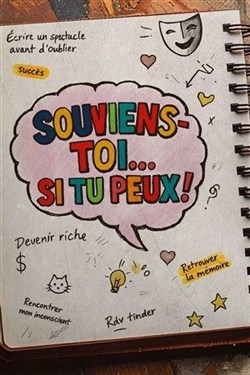 Écrire un spectacle
avant d'oublier
succès
SOUVIENS-
TOI...
SI TU PEUX!
Devenir riche
$
Retrouver
la mémoire
Rencontrer
mon inconscient
Rdv tinder